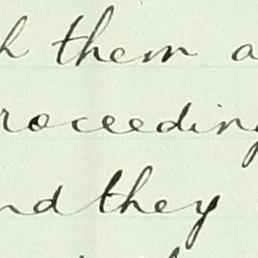 h them a
roceeding
nd they